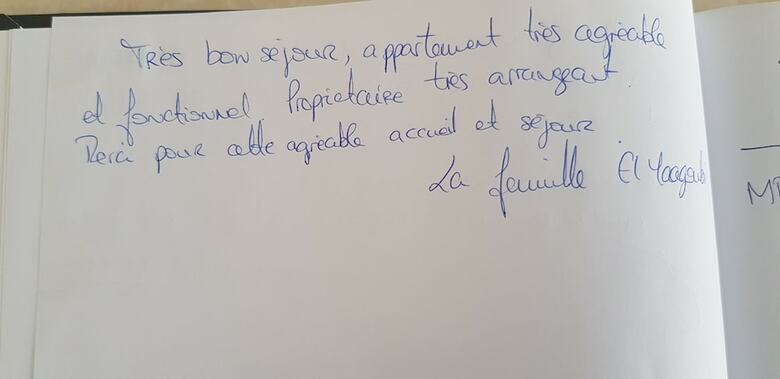 Très bon séjour, appartement très agréable
et fonctionnel, Propriétaire très arrangeant.
Merci pour cette agréable accueil et séjour
La famille El